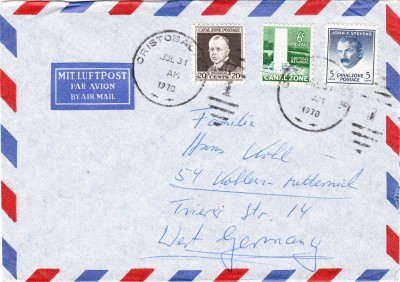 CRISTOBAL
JUL 31
AM
1970
CANAL ZONE POSTAGE
20 CENTS 20
6¢
CANAL ZONE
JOHN F. STEVENS
5 CANAL ZONE POSTAGE 5
JUL 31
AM
1970
MIT LUFTPOST
PAR AVION
BY AIR MAIL
Familie
Hans Kroll
54 Koblenz-Metternich
Trierer Str. 14
West Germany